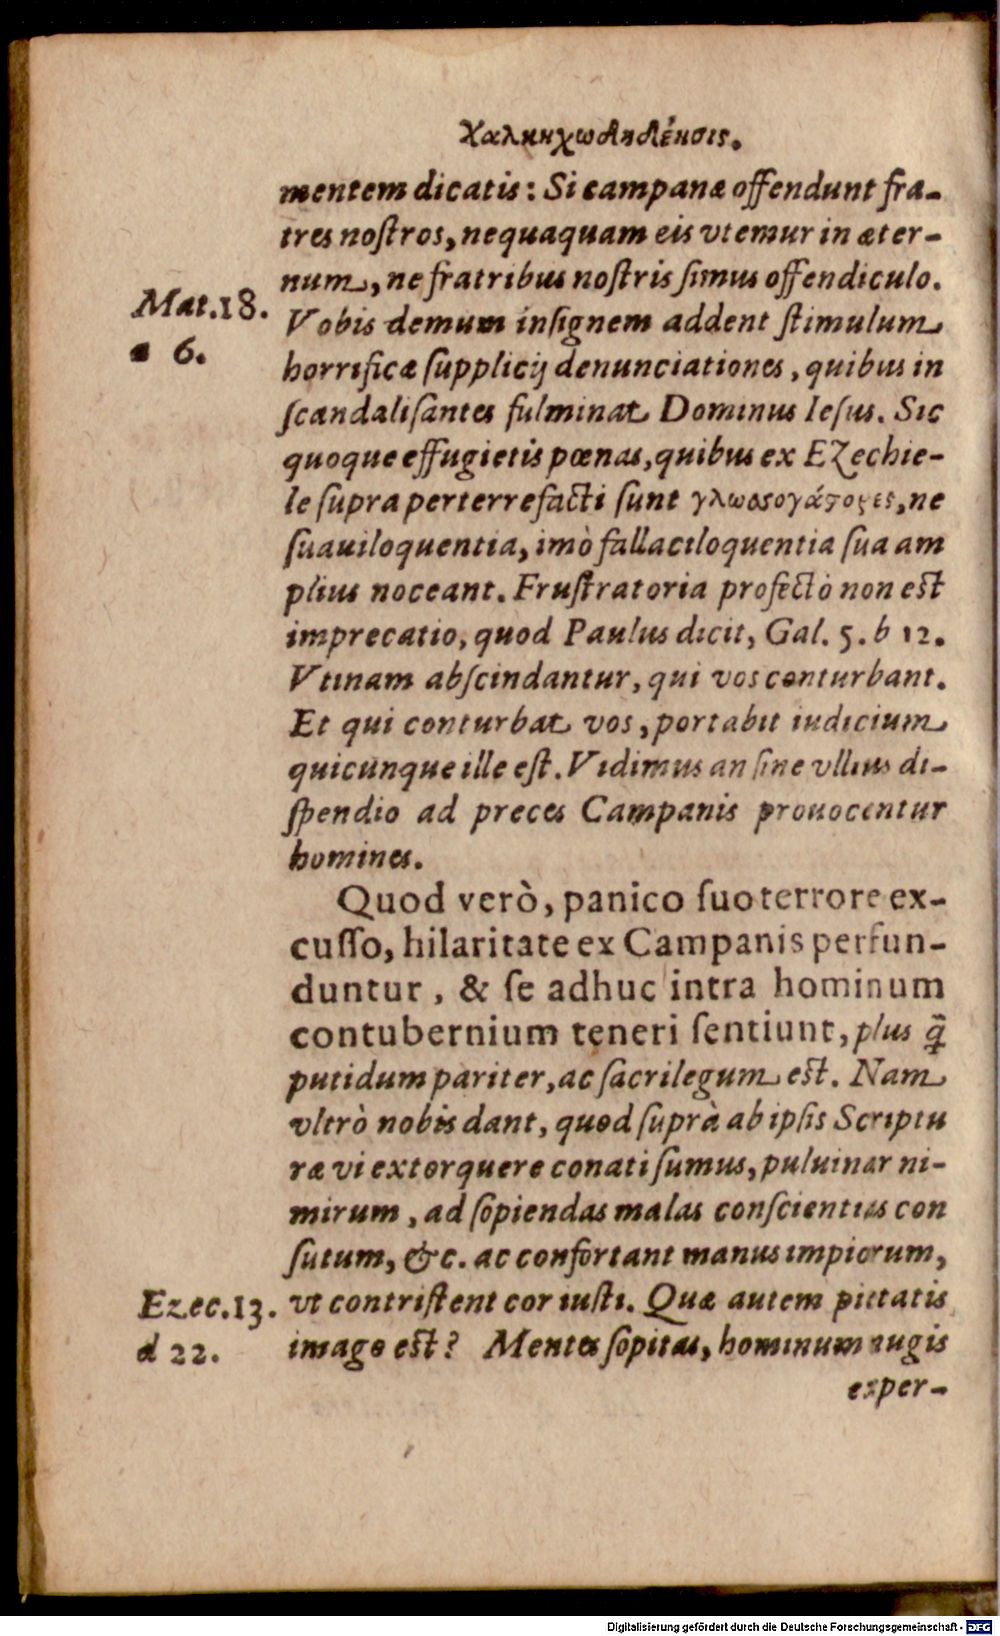 Χαληηχωδηδένσις.
mentem dicatis: Si campanæ offendunt fra-
tres noſtros, nequaquam eis vtemur in æter-
num, ne fratribus noſtris ſimus offendiculo.
Mat.18.
a 6.
Vobis demum inſignem addent ſtimulum
horrificæ ſupplicij denunciationes, quibus in
ſcandaliſantes fulminat Dominus Ieſus. Sic
quoque effugietis pœnas, quibus ex EZechie-
le ſupra perterrefacti ſunt γλωσσογάςορες, ne
ſuauiloquentia, imò fallaciloquentia ſua am
plius noceant. Fruſtratoria profectò non eſt
imprecatio, quod Paulus dicit, Gal. 5. b 12.
Vtinam abſcindantur, qui vos conturbant.
Et qui conturbat vos, portabit iudicium
quicunque ille eſt. Vidimus an ſine vllius di-
ſpendio ad preces Campanis prouocentur
homines.
Quod verò, panico ſuo terrore ex-
cuſſo, hilaritate ex Campanis perfun-
duntur, & ſe adhuc intra hominum
contubernium teneri ſentiunt, plus q̃
putidum pariter, ac ſacrilegum eſt. Nam
vltrò nobis dant, quod ſuprà ab ipſis Scriptu
ræ vi extorquere conati ſumus, puluinar ni-
mirum, ad ſopiendas malas conſcientias con
ſutum, &c. ac confortant manus impiorum,
Ezec.13.
d 22.
vt contriſtent cor iuſti. Quæ autem pietatis
imago eſt? Mentes ſopitas, hominum nugis
exper-
Digitalisierung gefördert durch die Deutsche Forschungsgemeinschaft - DFG